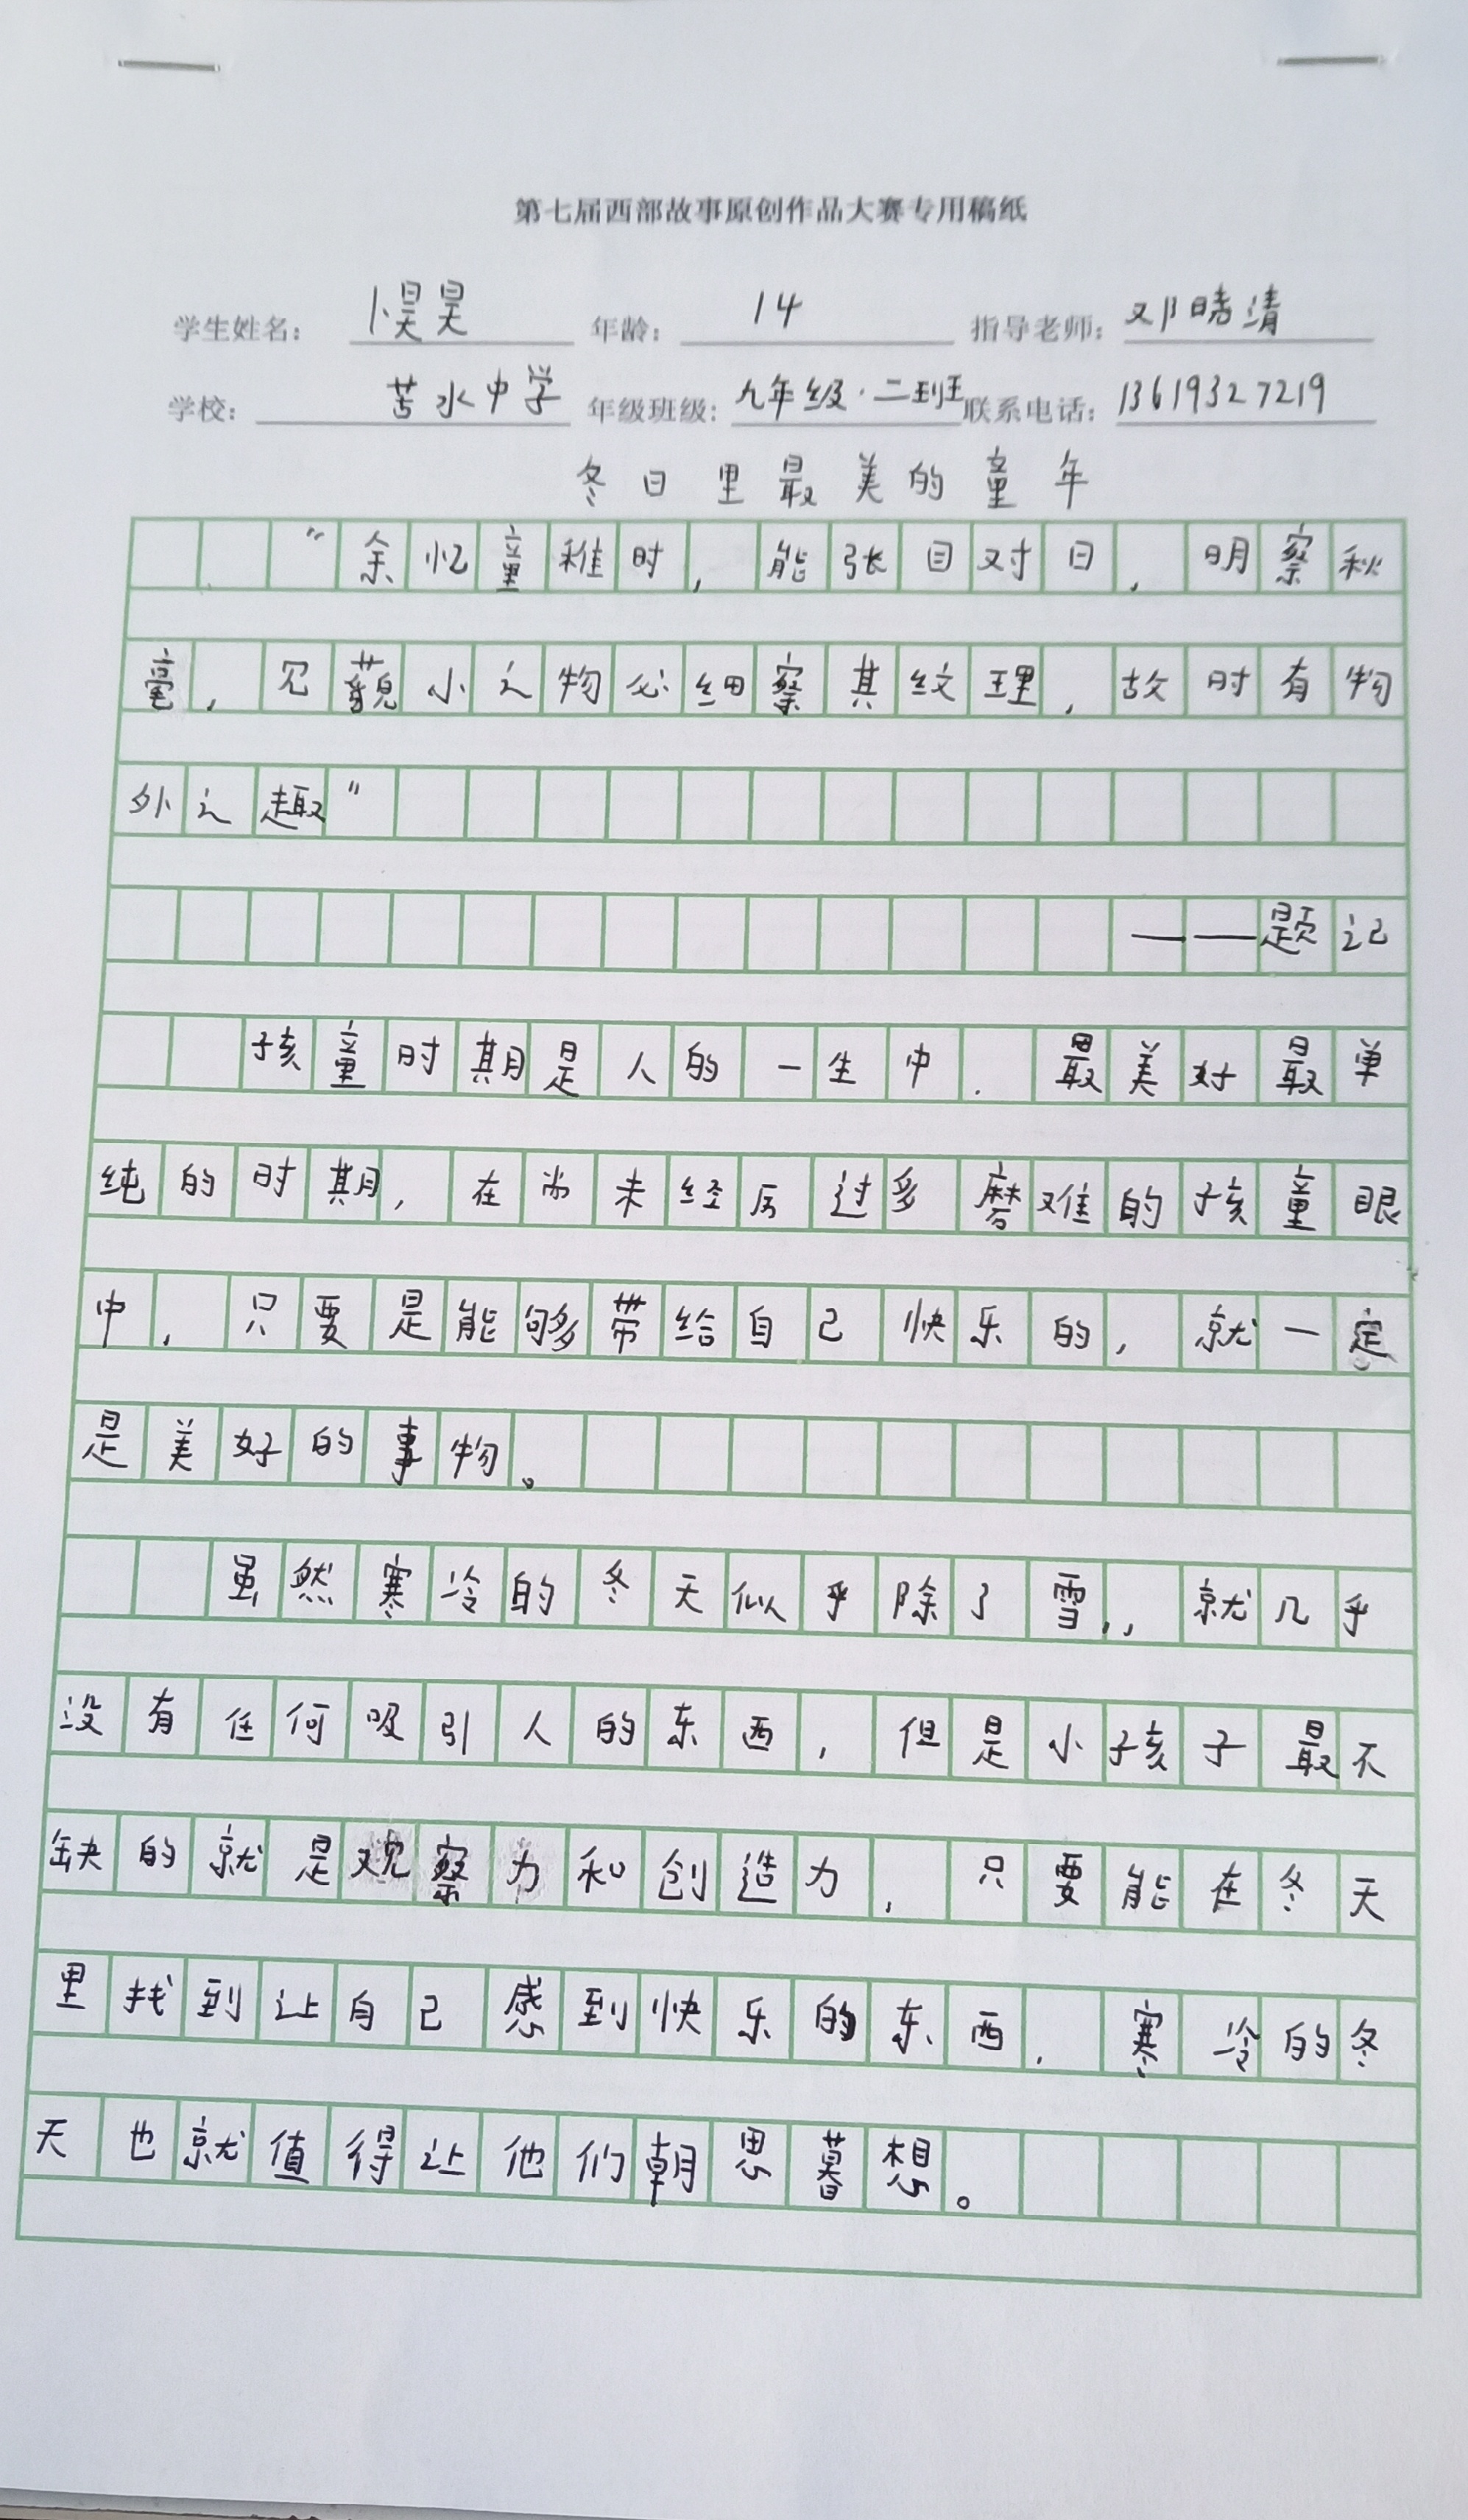 第七届西部故事原创作品大赛专用稿纸
学生姓名： 卜昊昊 年龄： 14 指导老师： 邓晴清
学校： 苦水中学 年级班级： 九年级·二班 联系电话： 13619327219
冬日里最美的童年
“余忆童稚时，能张目对日，明察秋
毫，见藐小之物必细察其纹理，故时有物
外之趣”
——题记
孩童时期是人的一生中，最美好最单
纯的时期，在尚未经历过多磨难的孩童眼
中，只要是能够带给自己快乐的，就一定
是美好的事物。
虽然寒冷的冬天似乎除了雪，，就几乎
没有任何吸引人的东西，但是小孩子最不
缺的就是观察力和创造力，只要能在冬天
里找到让自己感到快乐的东西，寒冷的冬
天也就值得让他们朝思暮想。